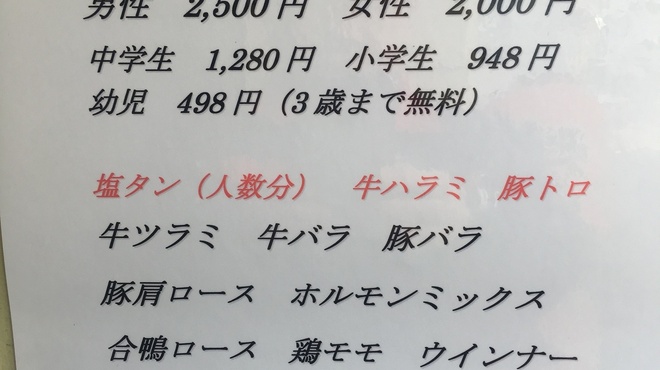 男性 2,500円 女性 2,000円
中学生 1,280円 小学生 948円
幼児 498円（3歳まで無料）
塩タン（人数分） 牛ハラミ 豚トロ
牛ツラミ 牛バラ 豚バラ
豚肩ロース ホルモンミックス
合鴨ロース 鶏モモ ウインナー